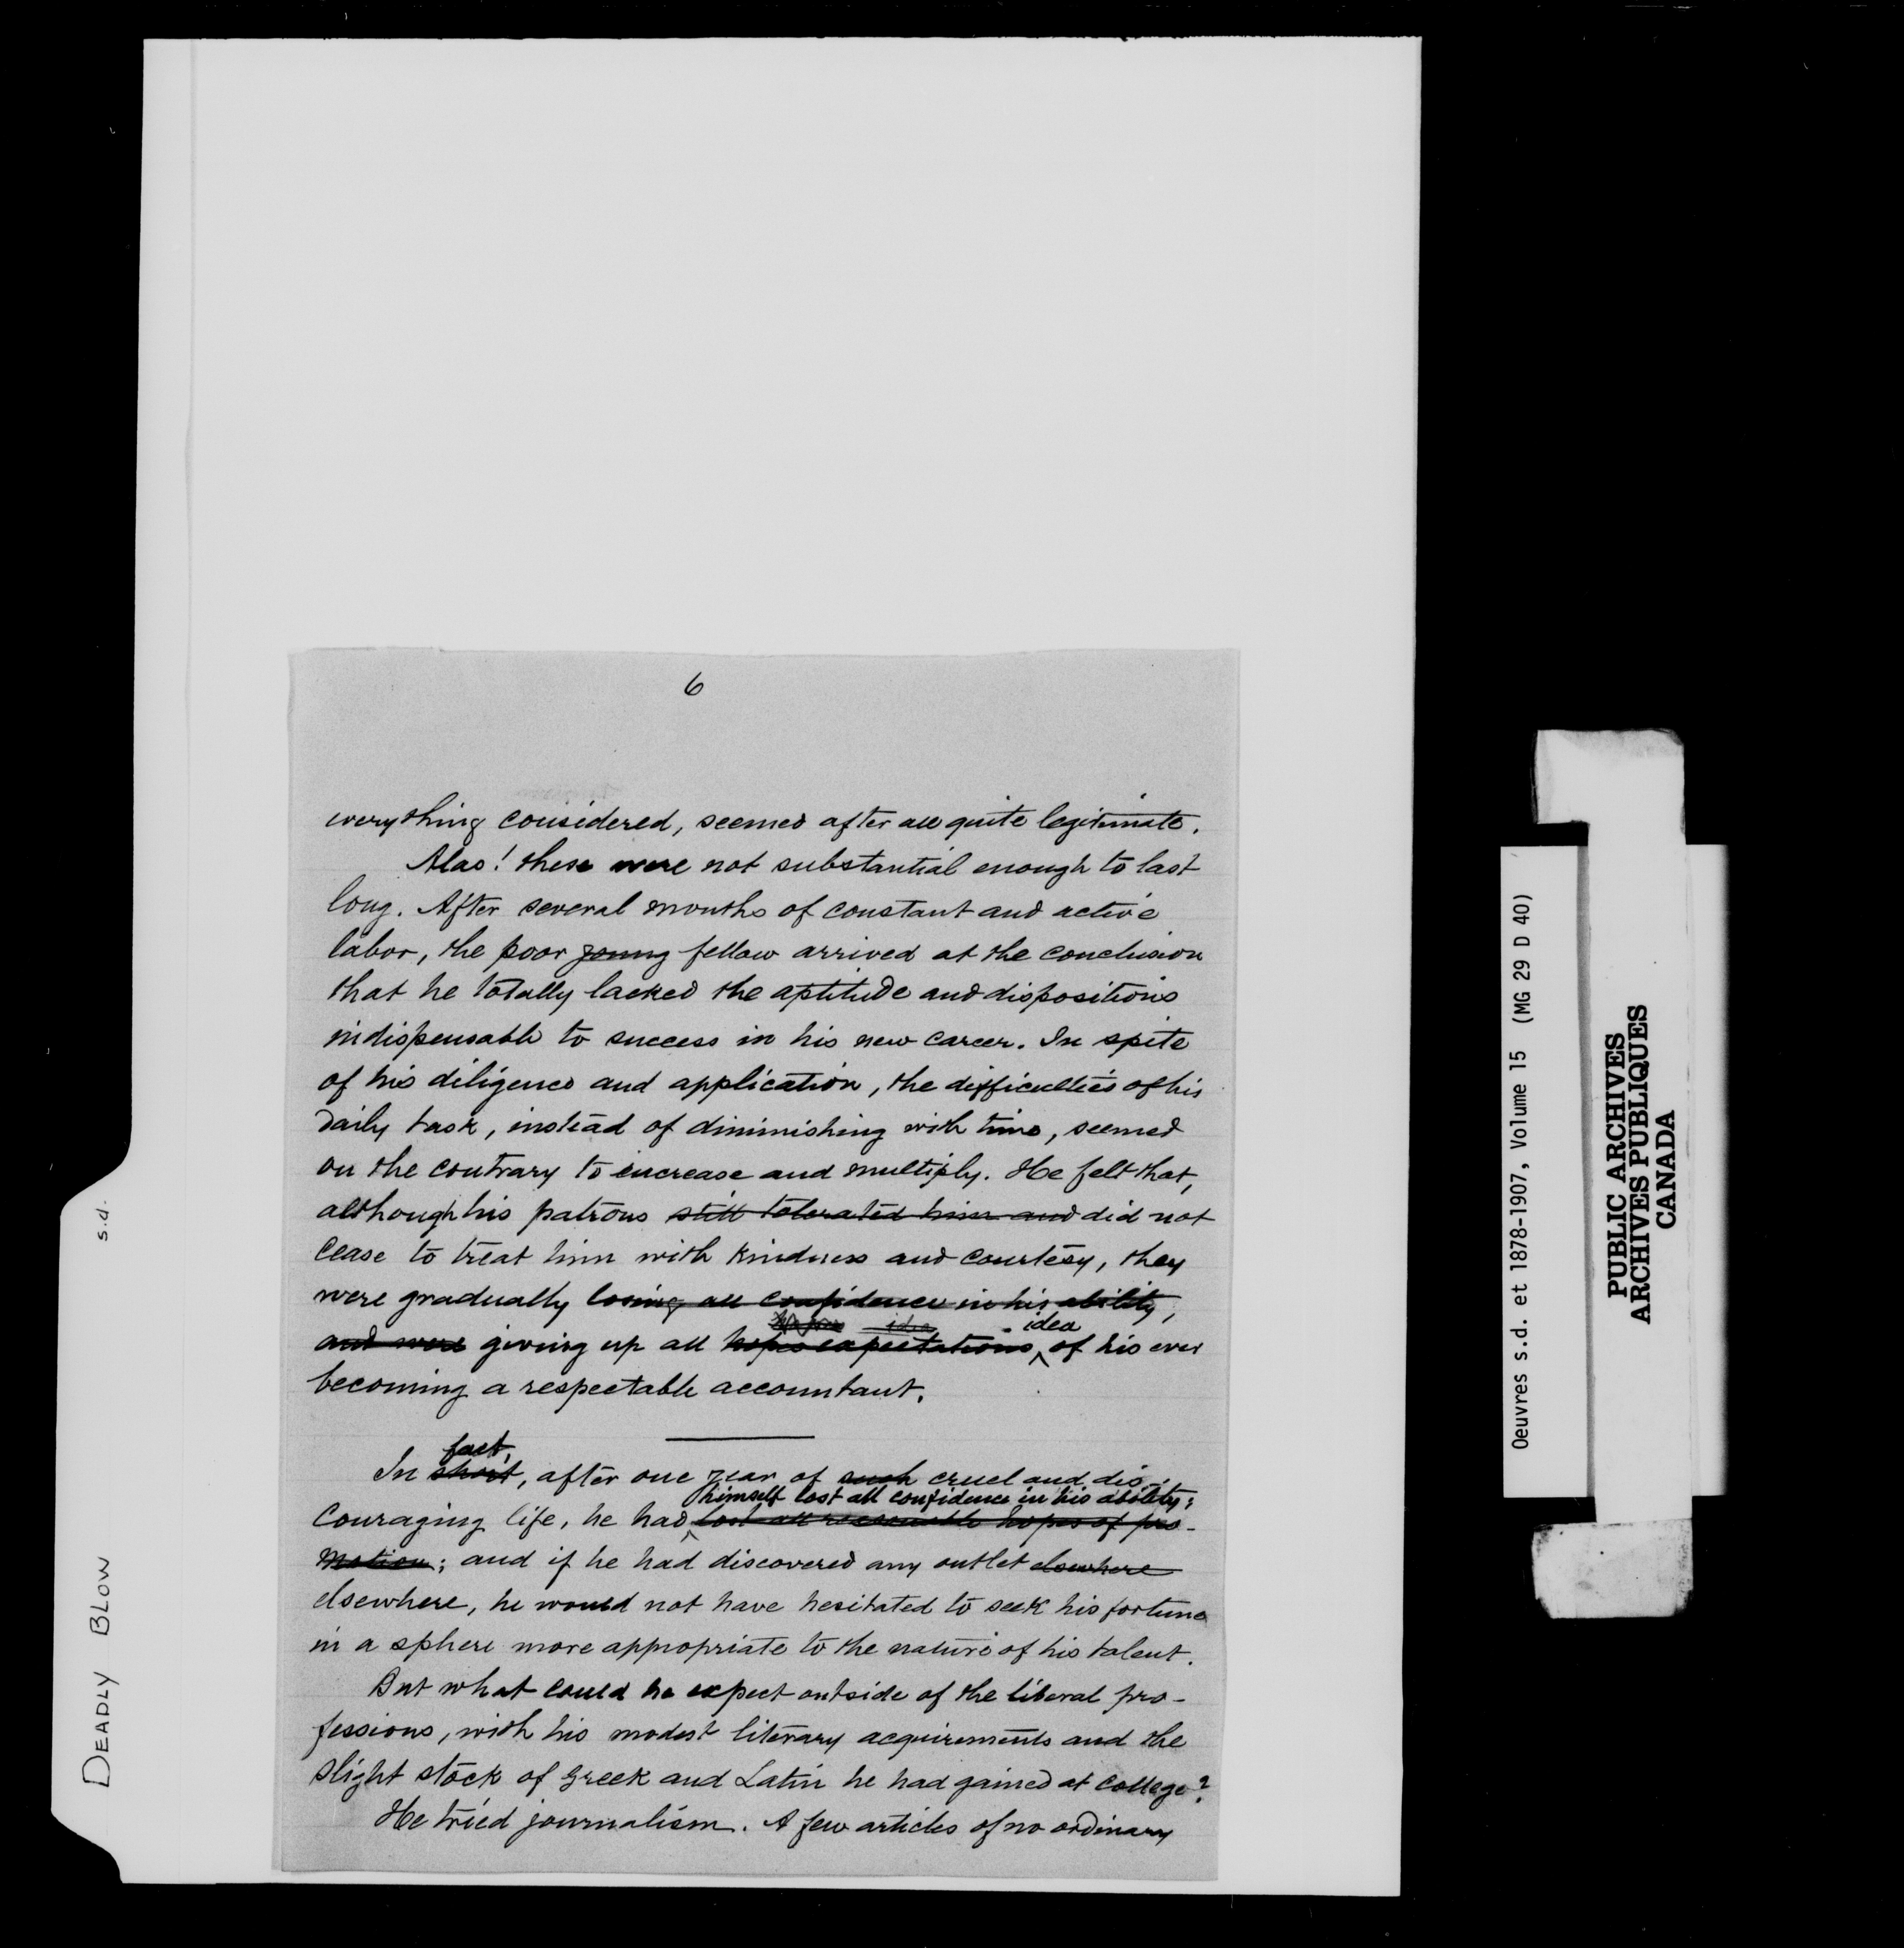 6
everything considered, seemed after all quite legitimate.
Alas! these were not substantial enough to last
long. After several months of constant and active
labor, the poor young fellow arrived at the conclusion
that he totally lacked the aptitude and dispositions
indispensable to success in his new career. In spite
of his diligence and application, the difficulties of his
daily task, instead of diminishing with time, seemed
on the contrary to increase and multiply. He felt that,
although his patrons still tolerated him and did not
cease to treat him with kindness and courtesy, they
were gradually losing all confidence in his ability,
idea idea
and were giving up all hopes expectations of his ever
becoming a respectable accountant.
fact,
In short, after one year of such cruel and dis-
himself lost all confidence in his ability;
couraging life, he had lost all reasonable hopes of pro-
motion; and if he had discovered any outlet elsewhere
elsewhere, he would not have hesitated to seek his fortune
in a sphere more appropriate to the nature of his talent.
But what could he expect outside of the liberal pro-
fessions, with his modest literary acquirements and the
slight stock of Greek and Latin he had gained at college?
He tried journalism. A few articles of no ordinary
DEADLY BLOW s.d.
Oeuvres s.d. et 1878-1907, Volume 15 (MG 29 D 40)
PUBLIC ARCHIVES
ARCHIVES PUBLIQUES
CANADA